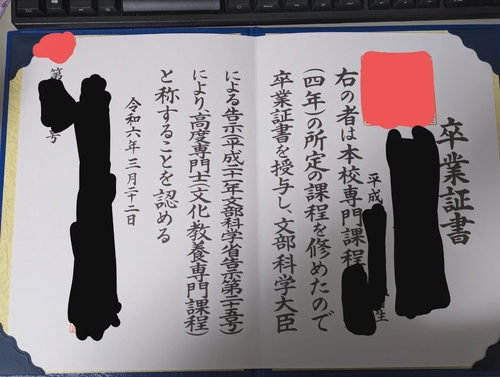 卒業証書
平成
生
右の者は本校専門課程
(四年)の所定の課程を修めたので
卒業証書を授与し、文部科学大臣
による告示(平成二十一年文部科学省告示第二十五号)
により、高度専門士(文化教養専門課程)
と称することを認める
令和六年三月二十二日
第
号